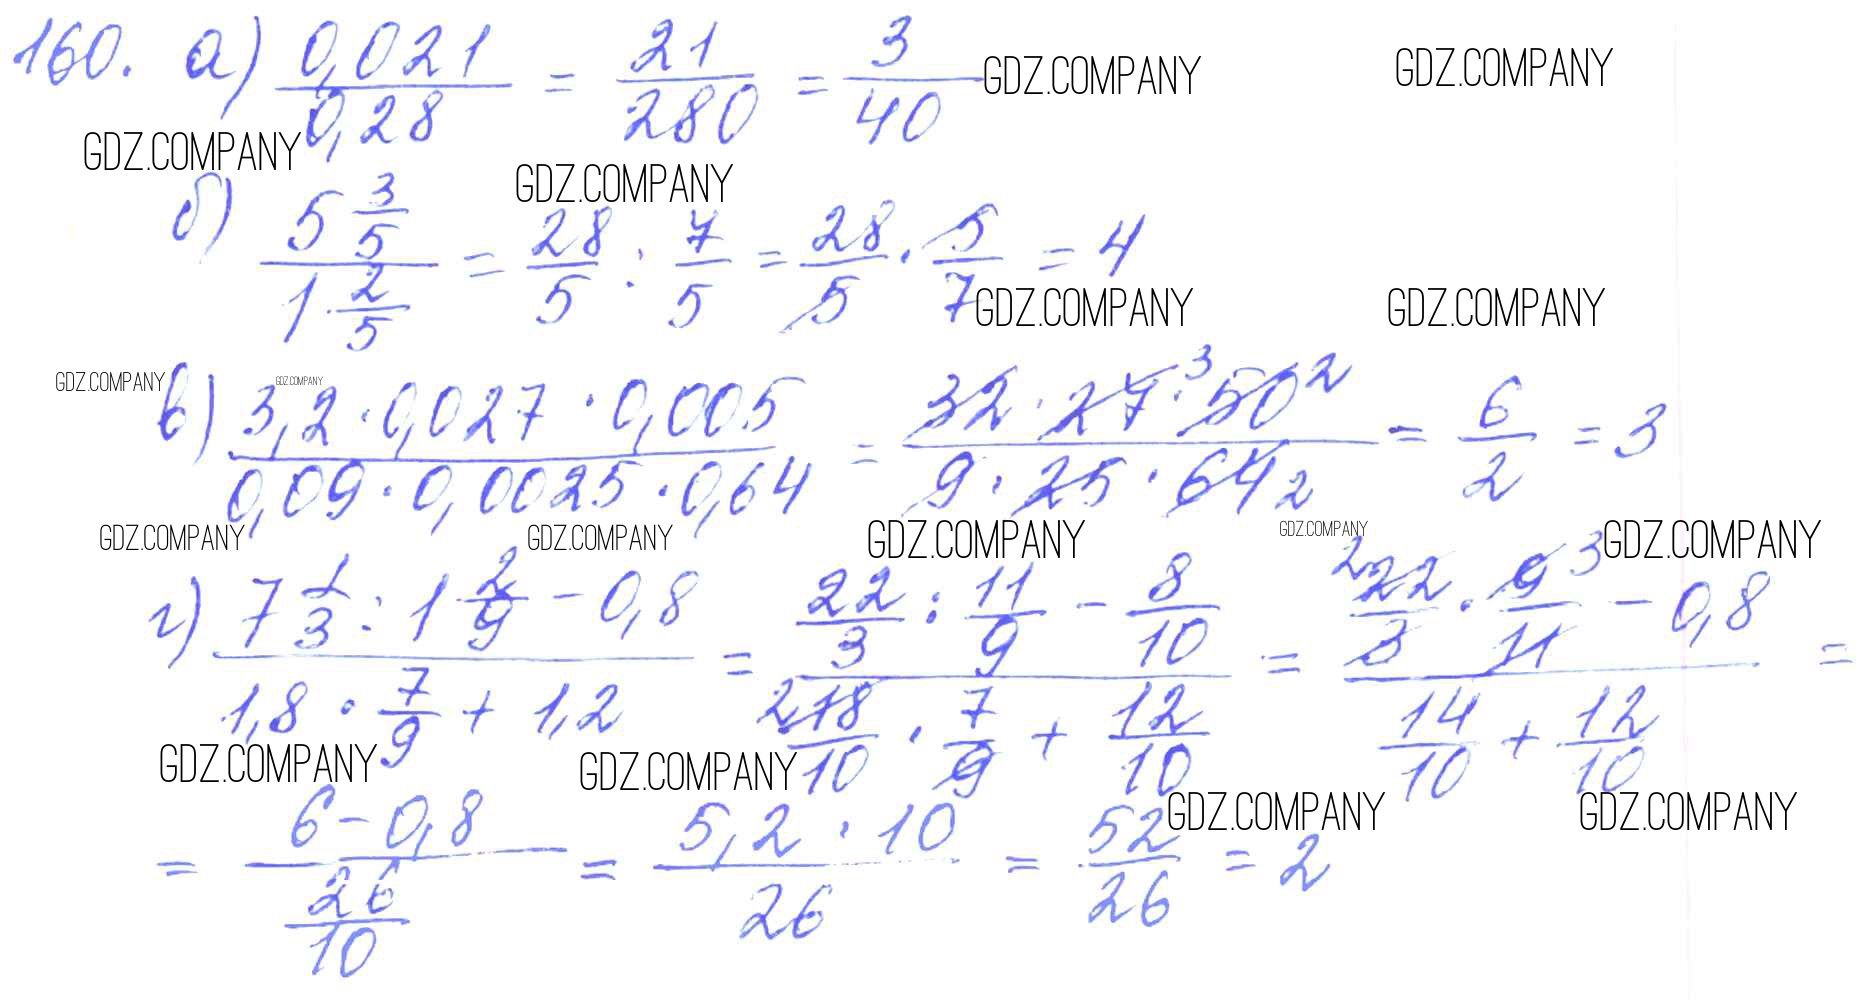 160. а) 0,021/0,28 = 21/280 = 3/40 GDZ.COMPANY GDZ.COMPANY
GDZ.COMPANY GDZ.COMPANY
б) 5 3/5 / 1 2/5 = 28/5 : 7/5 = 28/5 · 5/7 = 4
GDZ.COMPANY GDZ.COMPANY
GDZ.COMPANY GDZ.COMPANY
в) 3,2 · 0,027 · 0,005 / 0,09 · 0,0025 · 0,64 = 32 · 27 3 · 50 2 / 9 · 25 · 64 2 = 6/2 = 3
GDZ.COMPANY GDZ.COMPANY GDZ.COMPANY GDZ.COMPANY GDZ.COMPANY
г) 7 1/3 : 1 2/9 - 0,8 / 1,8 · 7/9 + 1,2 = 22/3 : 11/9 - 8/10 / 2 18/10 · 7/9 + 12/10 = 2 22/3 · 9 3/11 - 0,8 / 14/10 + 12/10 =
GDZ.COMPANY GDZ.COMPANY GDZ.COMPANY GDZ.COMPANY
= 6 - 0,8 / 26/10 = 5,2 · 10 / 26 = 52/26 = 2